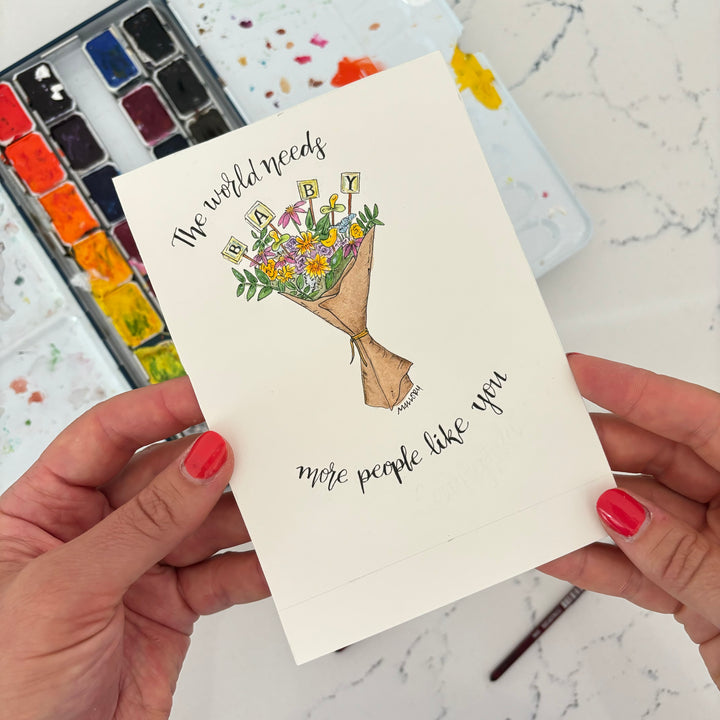 The world needs
BABY
more people like you